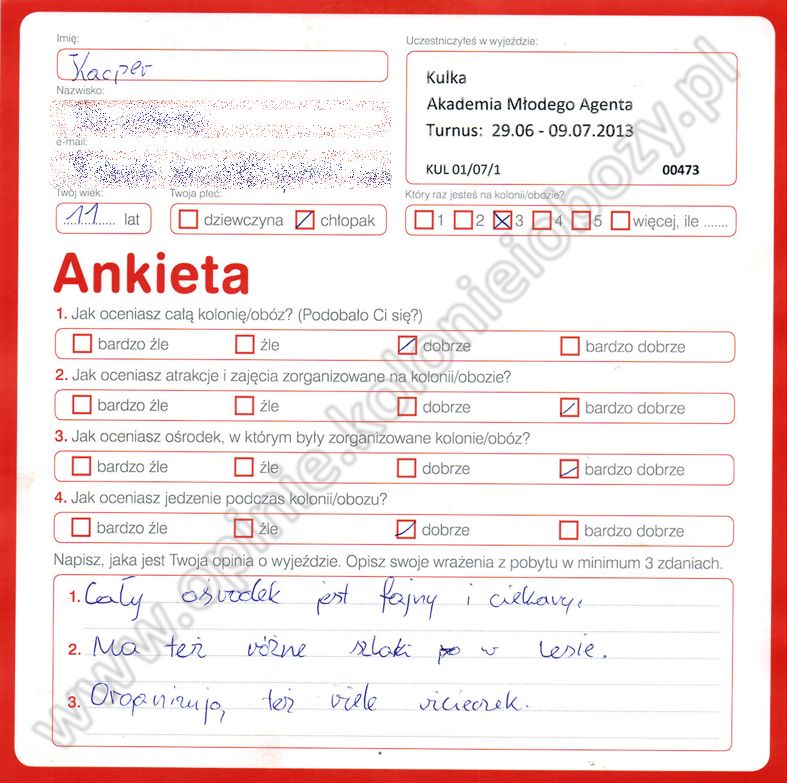 Imię:
Kacper
Nazwisko:
e-mail:
Twój wiek:
11 lat
Twoja płeć:
dziewczyna chłopak
Uczestniczyłeś w wyjeździe:
Kulka
Akademia Młodego Agenta
Turnus: 29.06 - 09.07.2013
KUL 01/07/1 00473
Który raz jesteś na kolonii/obozie?
1 2 3 4 5 więcej, ile .......
Ankieta
1. Jak oceniasz całą kolonię/obóz? (Podobało Ci się?)
bardzo źle źle dobrze bardzo dobrze
2. Jak oceniasz atrakcje i zajęcia zorganizowane na kolonii/obozie?
bardzo źle źle dobrze bardzo dobrze
3. Jak oceniasz ośrodek, w którym były zorganizowane kolonie/obóz?
bardzo źle źle dobrze bardzo dobrze
4. Jak oceniasz jedzenie podczas kolonii/obozu?
bardzo źle źle dobrze bardzo dobrze
Napisz, jaka jest Twoja opinia o wyjeździe. Opisz swoje wrażenia z pobytu w minimum 3 zdaniach.
1. Cały ośrodek jest fajny i ciekawy.
2. Ma też różne szlaki w lesie.
3. Organizują też wiele wycieczek.
www.opinie.kolonieiobozy.pl